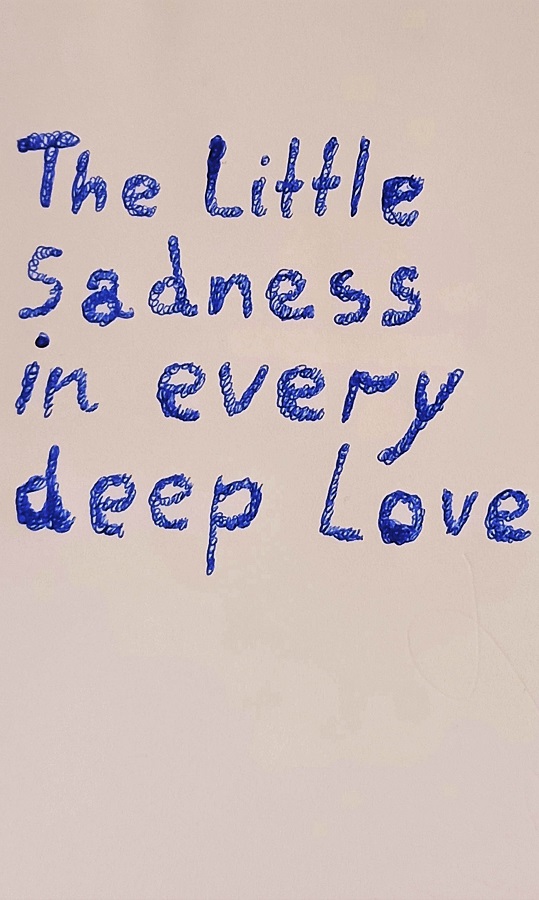 The Little
Sadness
in every
deep Love